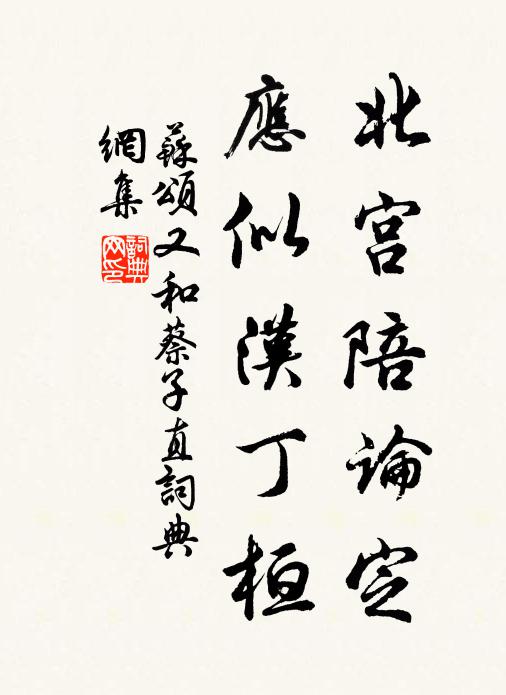 北宮陪論定
應似漢丁桓
蘇頌又和蔡子直詞典
網集
詞典
网印